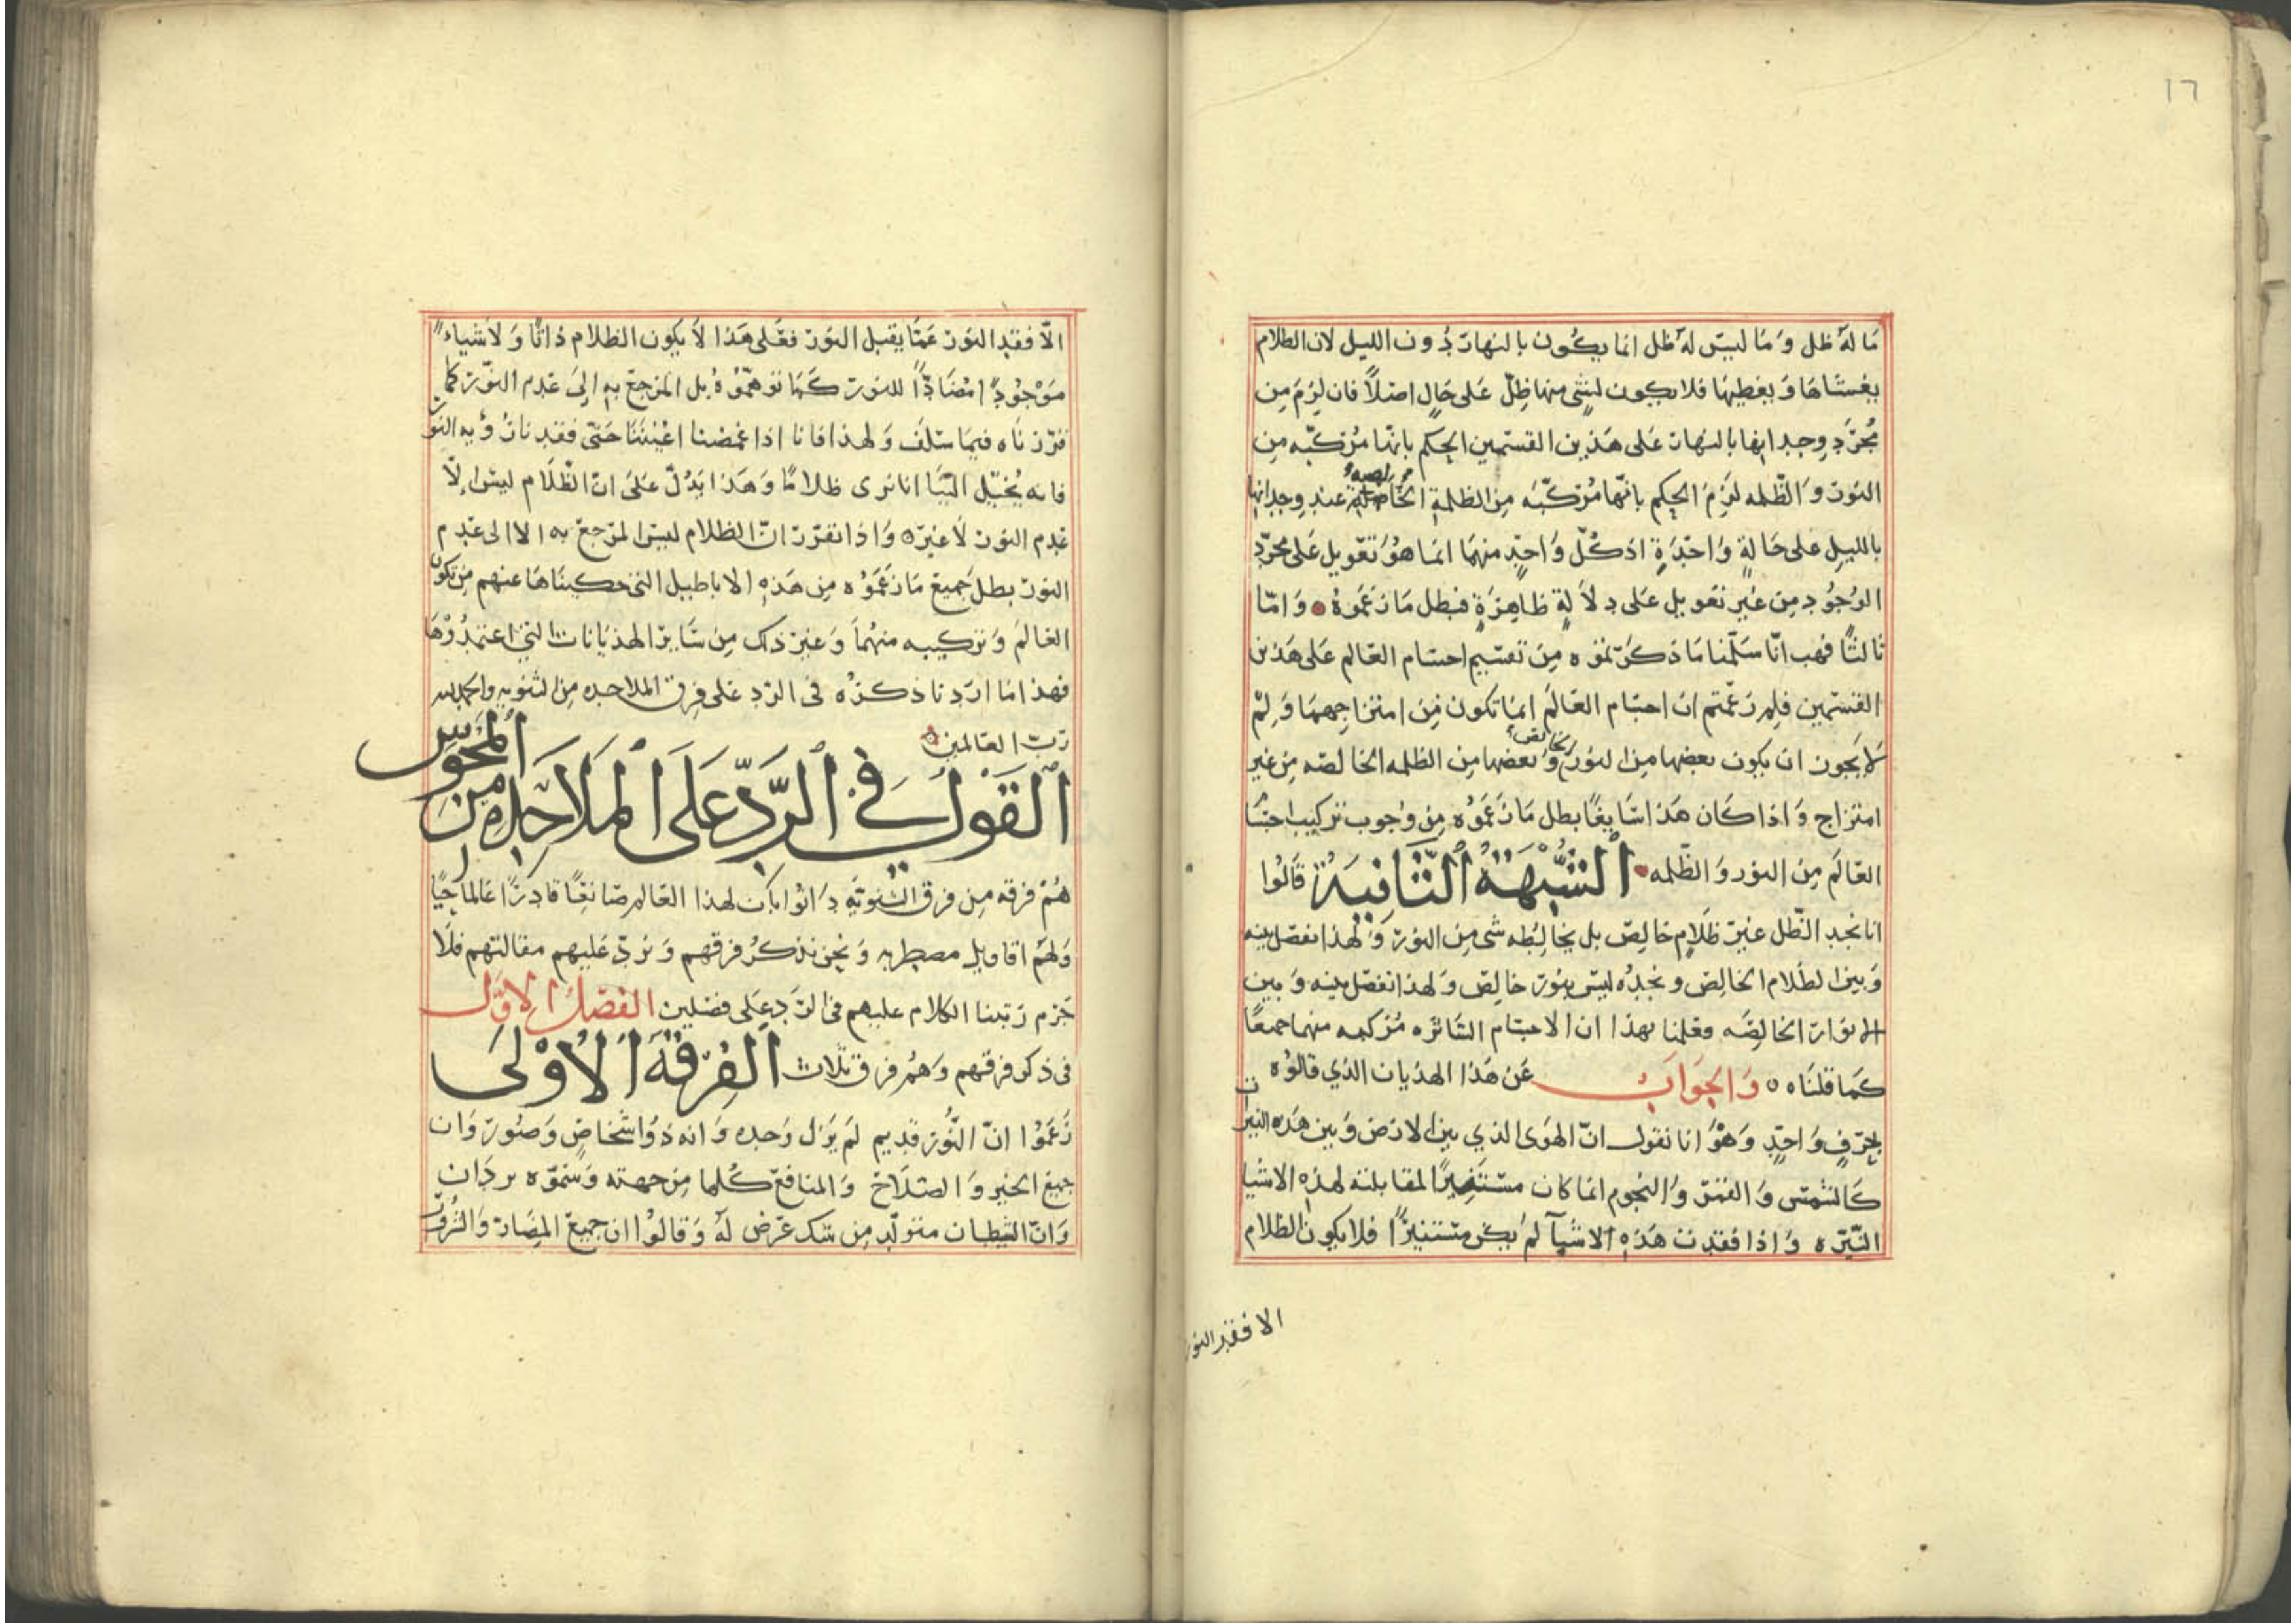 ١٦
مَا لَهُ ظل وَمَا ليسَ لهُ ظل انما يكُون بالنهار دُون الليل لان الظلام
يغشاهَا وَيغطيهَا فلا يكون لشىٍ منها ظِلٌّ عَلى حَالٍ اصلاً فان لزمَ مِن
مُجرَّدِ وجدانها بالنهار عَلى هَذين القسمين الحكم بانّها مُركّبه مِن
النور وَالظّلمه لَزِمَ الحكِم بانّها مُركّبَه مِن الظلمةِ الخالصه عند وجدانها
بالليلِ على حَالةٍ وَاحدَةٍ اذ كُلّ وَاحدٍ منهمَا انمَا هُوَ تعويل عَلى مجرّدِ
الوُجُودِ مِن غير تعويل عَلى دِلاَلةٍ ظاهِرَةٍ فبَطل مَا زعَموهُ وَامّا
ثالثًا فهب انّا سَلّمنا مَا ذكرتموه مِن تقسيم اجسام العَالم عَلى هَذين
القسمين فلِم زعَمتم ان اجسَام العَالمَ انما تكون مِن امتزاجِهمَا وَلِم
لا يجَون ان يكون بعضها من النور الخالص وَبَعضها مِن الظلمه الخالصه مِن غير
امتزاج وَاذا كَان هَذا سَايغًا بطل مَا زعَموُه مِن وُجوب تركيب اجسَا
العَالمَ مِن النور وَالظّلمه الشُّبْهَةُ الثَّانِيَةُ قَالُوا
انا نجد الظّل غيرَ ظَلامٍ خالِصٍ بل يخالِطه شى مِن النورَ وَلهذا نفصّل بينه
وَبين الظلام الخالِصِ ونجدُه ليسَ بنورٍ خالِصٍ وَلهذا نفصّل بينه وَبين
الانوار الخالِصَه فعَلمنا بهذا ان الاجسَام السَّاترَه مُركبه منهما جميعًا
كمَا قلنَاه وَالجَوَابُ عَن هَذا الهذيان الذي قالوُه
بحرَفٍ وَاحدٍ وَهْوَ انا نقول انّ الهوَى الذي بين الارَض وَبين هَذه النيرات
كَالشمسِ وَالقمَر وَالنجوم انما كان مسْتَنيرًا لمقابلته لهذِه الاشيا
النّيّره وَاذا فقدت هَذهِ الاشيآ لمَ يكُن مسْتنيرًا فلا يكون الظلام
الا فقد النور
الاّ فقد النوَر عَمَّا يقبل النوَر فعَلى هَذا لاَ يكون الظلام ذاتًا وَلاَ شياء
مَوْجُودًا مُضَادًّا للنورِ كمَا توهمّوُهُ بل المرَجعَ به اِلىَ عَدم النوّر كما
قرّرنَاه فيمَا سَلفَ وَلهذا فانا اذا غمضنا اعْيُننَا حَتى فقدنا رُؤيه النوَر
فانه يُخيّل اليَنا انا نرى ظلامًا وَهَذا يَدُلّ عَلىَ انّ الظَّلام ليسَ اِلاّ
عَدم النور لاَ غيرَه وَاذا تقرّر انّ الظلام ليسَ المرَجعَ به الا الى عَدم
النورَ بطل جَميعَ مَا زعَمَوُه مِن هَذهِ الاباطيل التى حكينَاهَا عنهم مِن تكوّن
العَالمَ وَتركيبه منهُمَا وَغيرَ ذلك مِن سَايرَ الهذيَانات التى اعتمدُوْهَا
فهذا مَا ارَدنا ذكرُه فى الردّ عَلى فِرق الملاحده مِن الثنويه والحمد لله
ربّ العَالمين
القَول في الرَّدِّ عَلَى المَلاَحِدَه مِن المَجوُس
هُمْ فرقه مِن فرق الثنويَّهِ دَانوُا بانّ لهذا العَالم صَانعًا قادِرًا عَالما حيًّا
وَلهُم اقاويل مضطربه وَنحن نذكرُ فرقهم وَنردّ عَليهم مقالتهم فلاَ
جَرم رَتبنا الكلام عليهم فى الرّدِ عَلى فصَلين الفصَلُ الاوَّل
فى ذكر فرقهم وَهمُ فرق ثلاث الفِرْقَةُ الأُوْلىَ
زَعَمَوُا انّ النّوُر قديم لمَ يزَل وَحده وَانه ذوُ اشخاصٍ وَصُوَر وَان
جميعَ الخير وَالصَّلاَح وَالمنافعَ كُلها مِن جهته وَسَموّه يردَان
وَانّ الشيطان متولّد مِن شكٍ عَرَض لهُ وَقالوُا ان جميعَ المضَار وَالشرُورَ